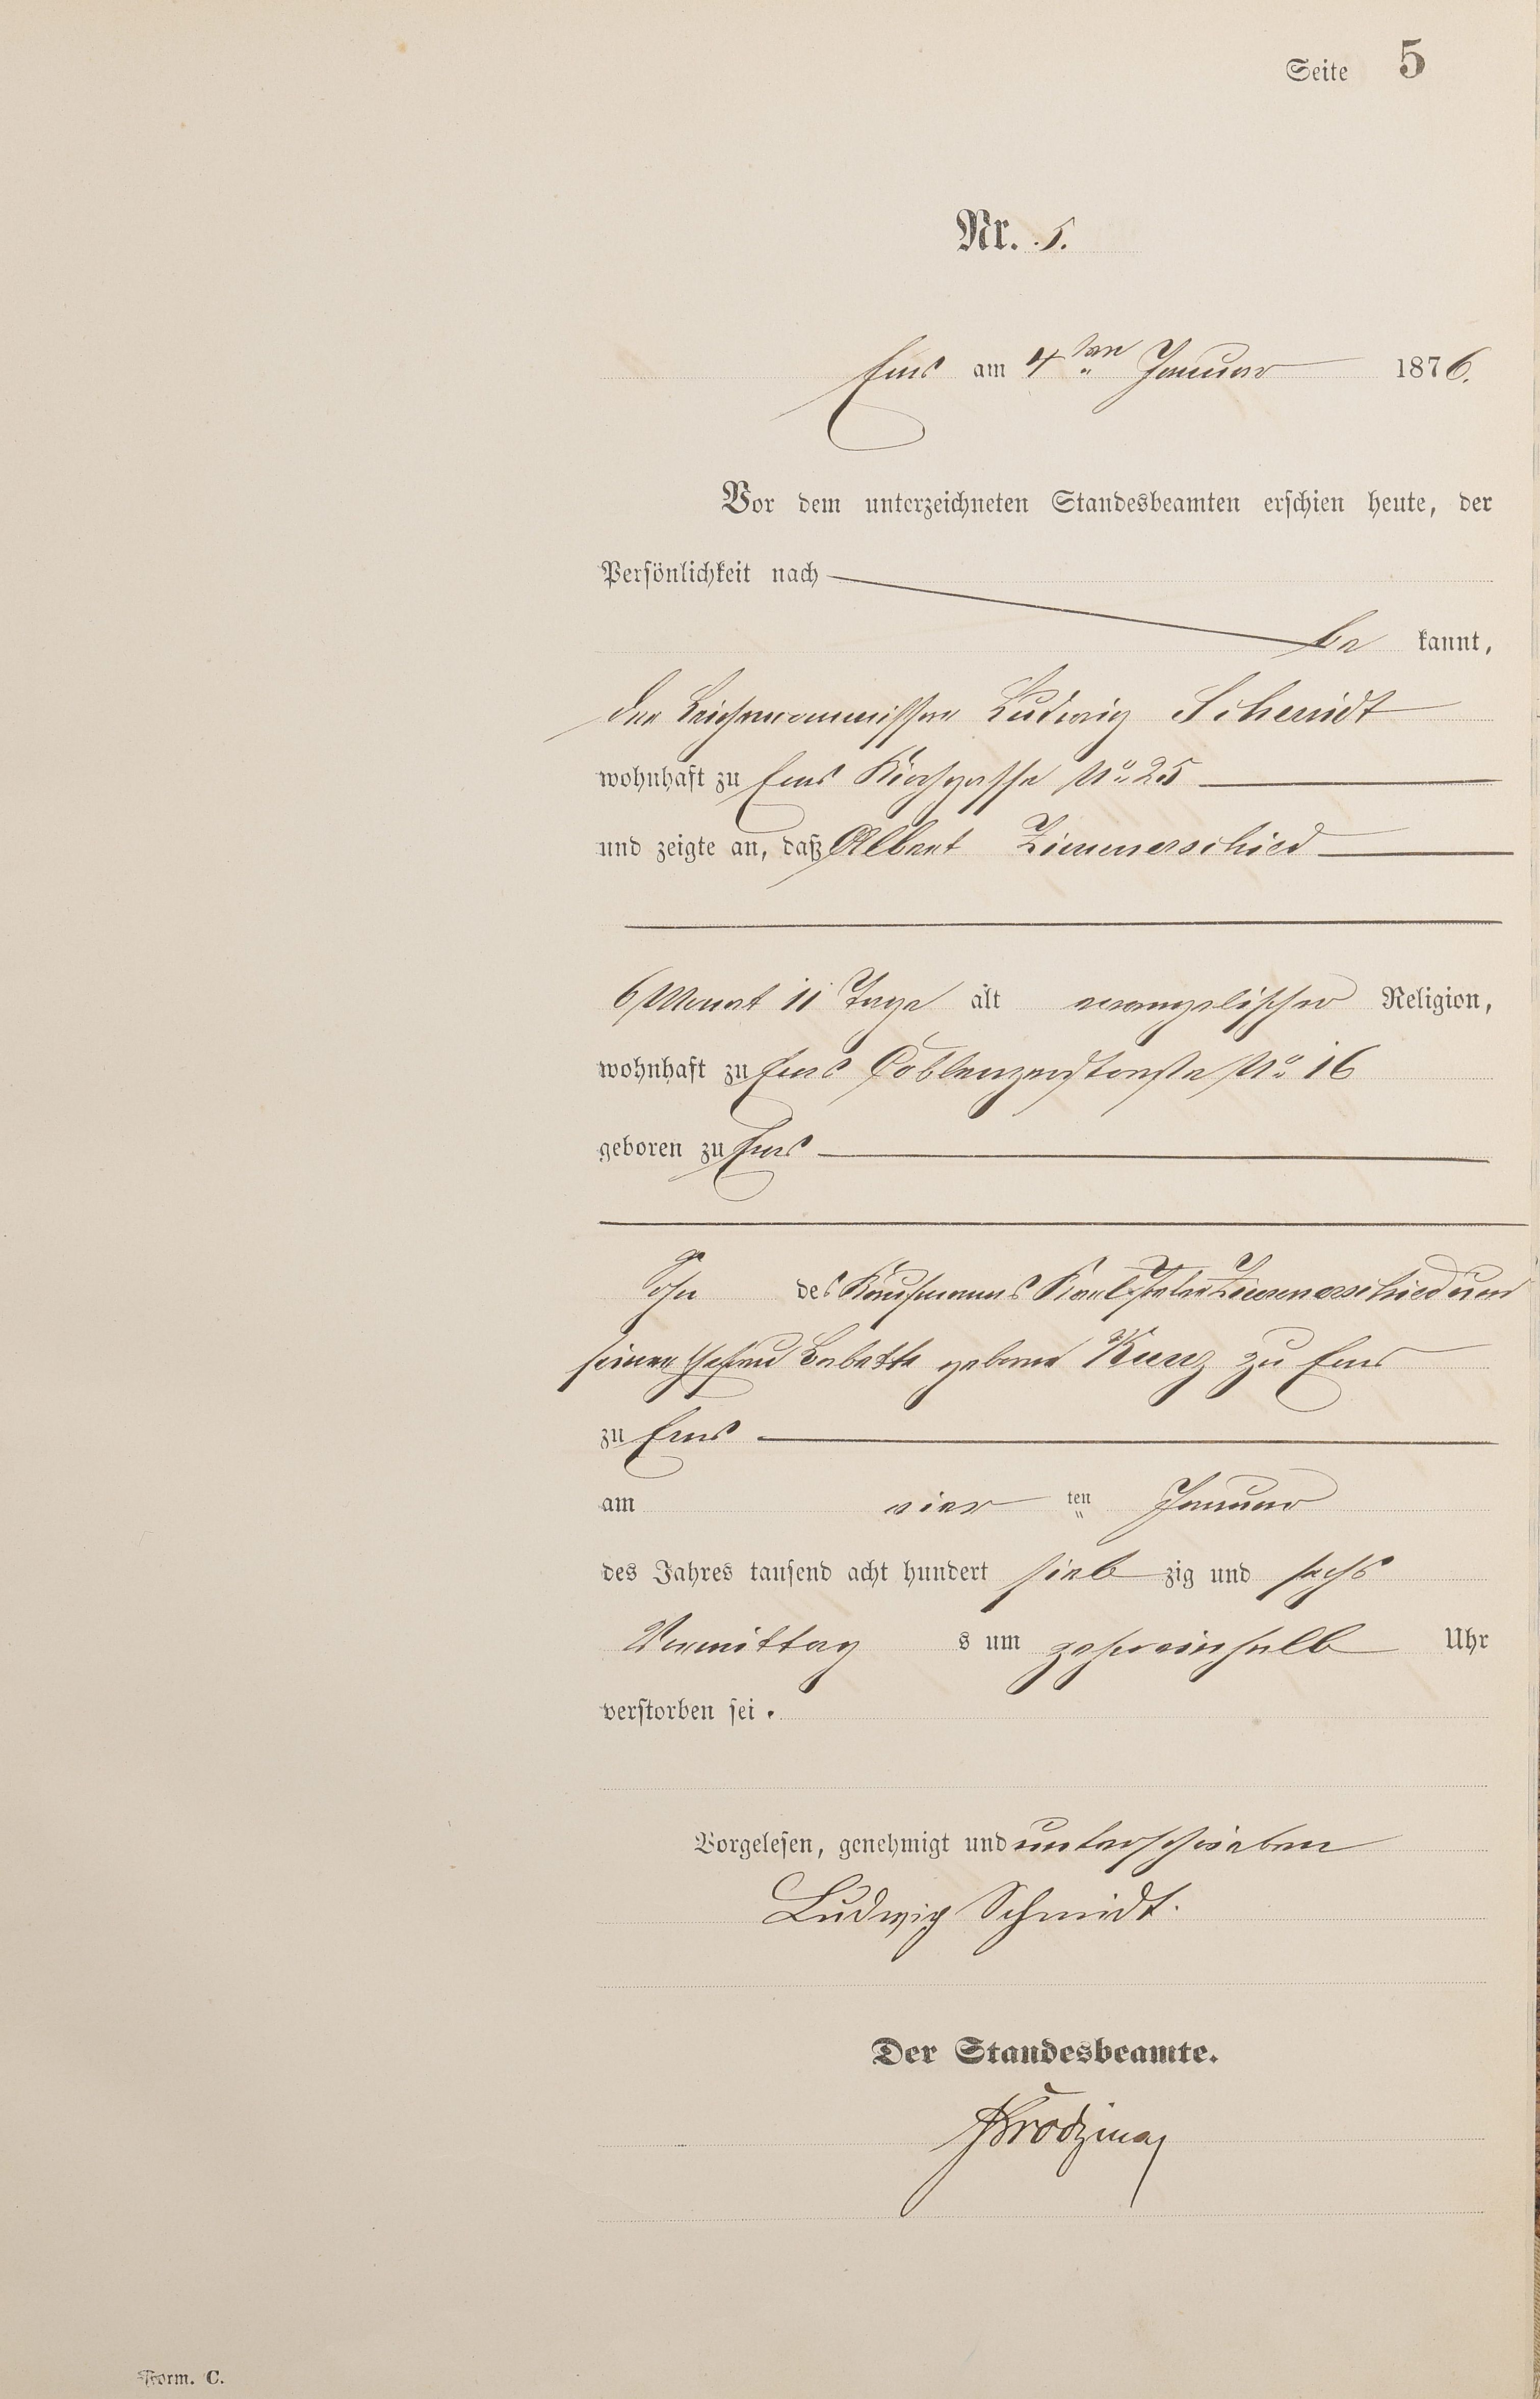 Seite 5
Nr. 5.
Ems am 4ten Januar 1876.
Vor dem unterzeichneten Standesbeamten erschien heute, der
Persönlichkeit nach
be kannt,
der Leichencommissar Ludwig Schmidt
wohnhaft zu Ems Kirchgasse No 25
und zeigte an, daß Albert Zimmerschied
6 Monat 11 Tage alt evangelischer Religion,
wohnhaft zu Ems Coblenzerstraße No 16
geboren zu Ems
Sohn des Kaufmanns Karl Peter Zimmerschied und
seiner Ehefrau Babette geborne Kunz zu Ems
zu Ems
am vier ten Januar
des Jahres tausend acht hundert sieb zig und sechs
Vormittag s um zeheneinhalb Uhr
verstorben sei.
Vorgelesen, genehmigt und unterschrieben
Ludwig Schmidt.
Der Standesbeamte.
Form. C.